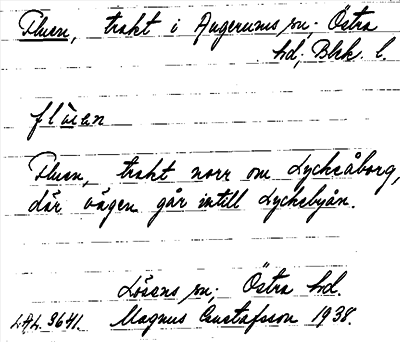 Fluen, trakt i Augerums sn; Östra
hd, Blek. l.
flu̇en
Fluen, trakt norr om Lyckåborg,
där vägen går intill Lyckebyån.
Lösens sn; Östra hd.
LAL. 3641. Magnus Gustafsson 1938.